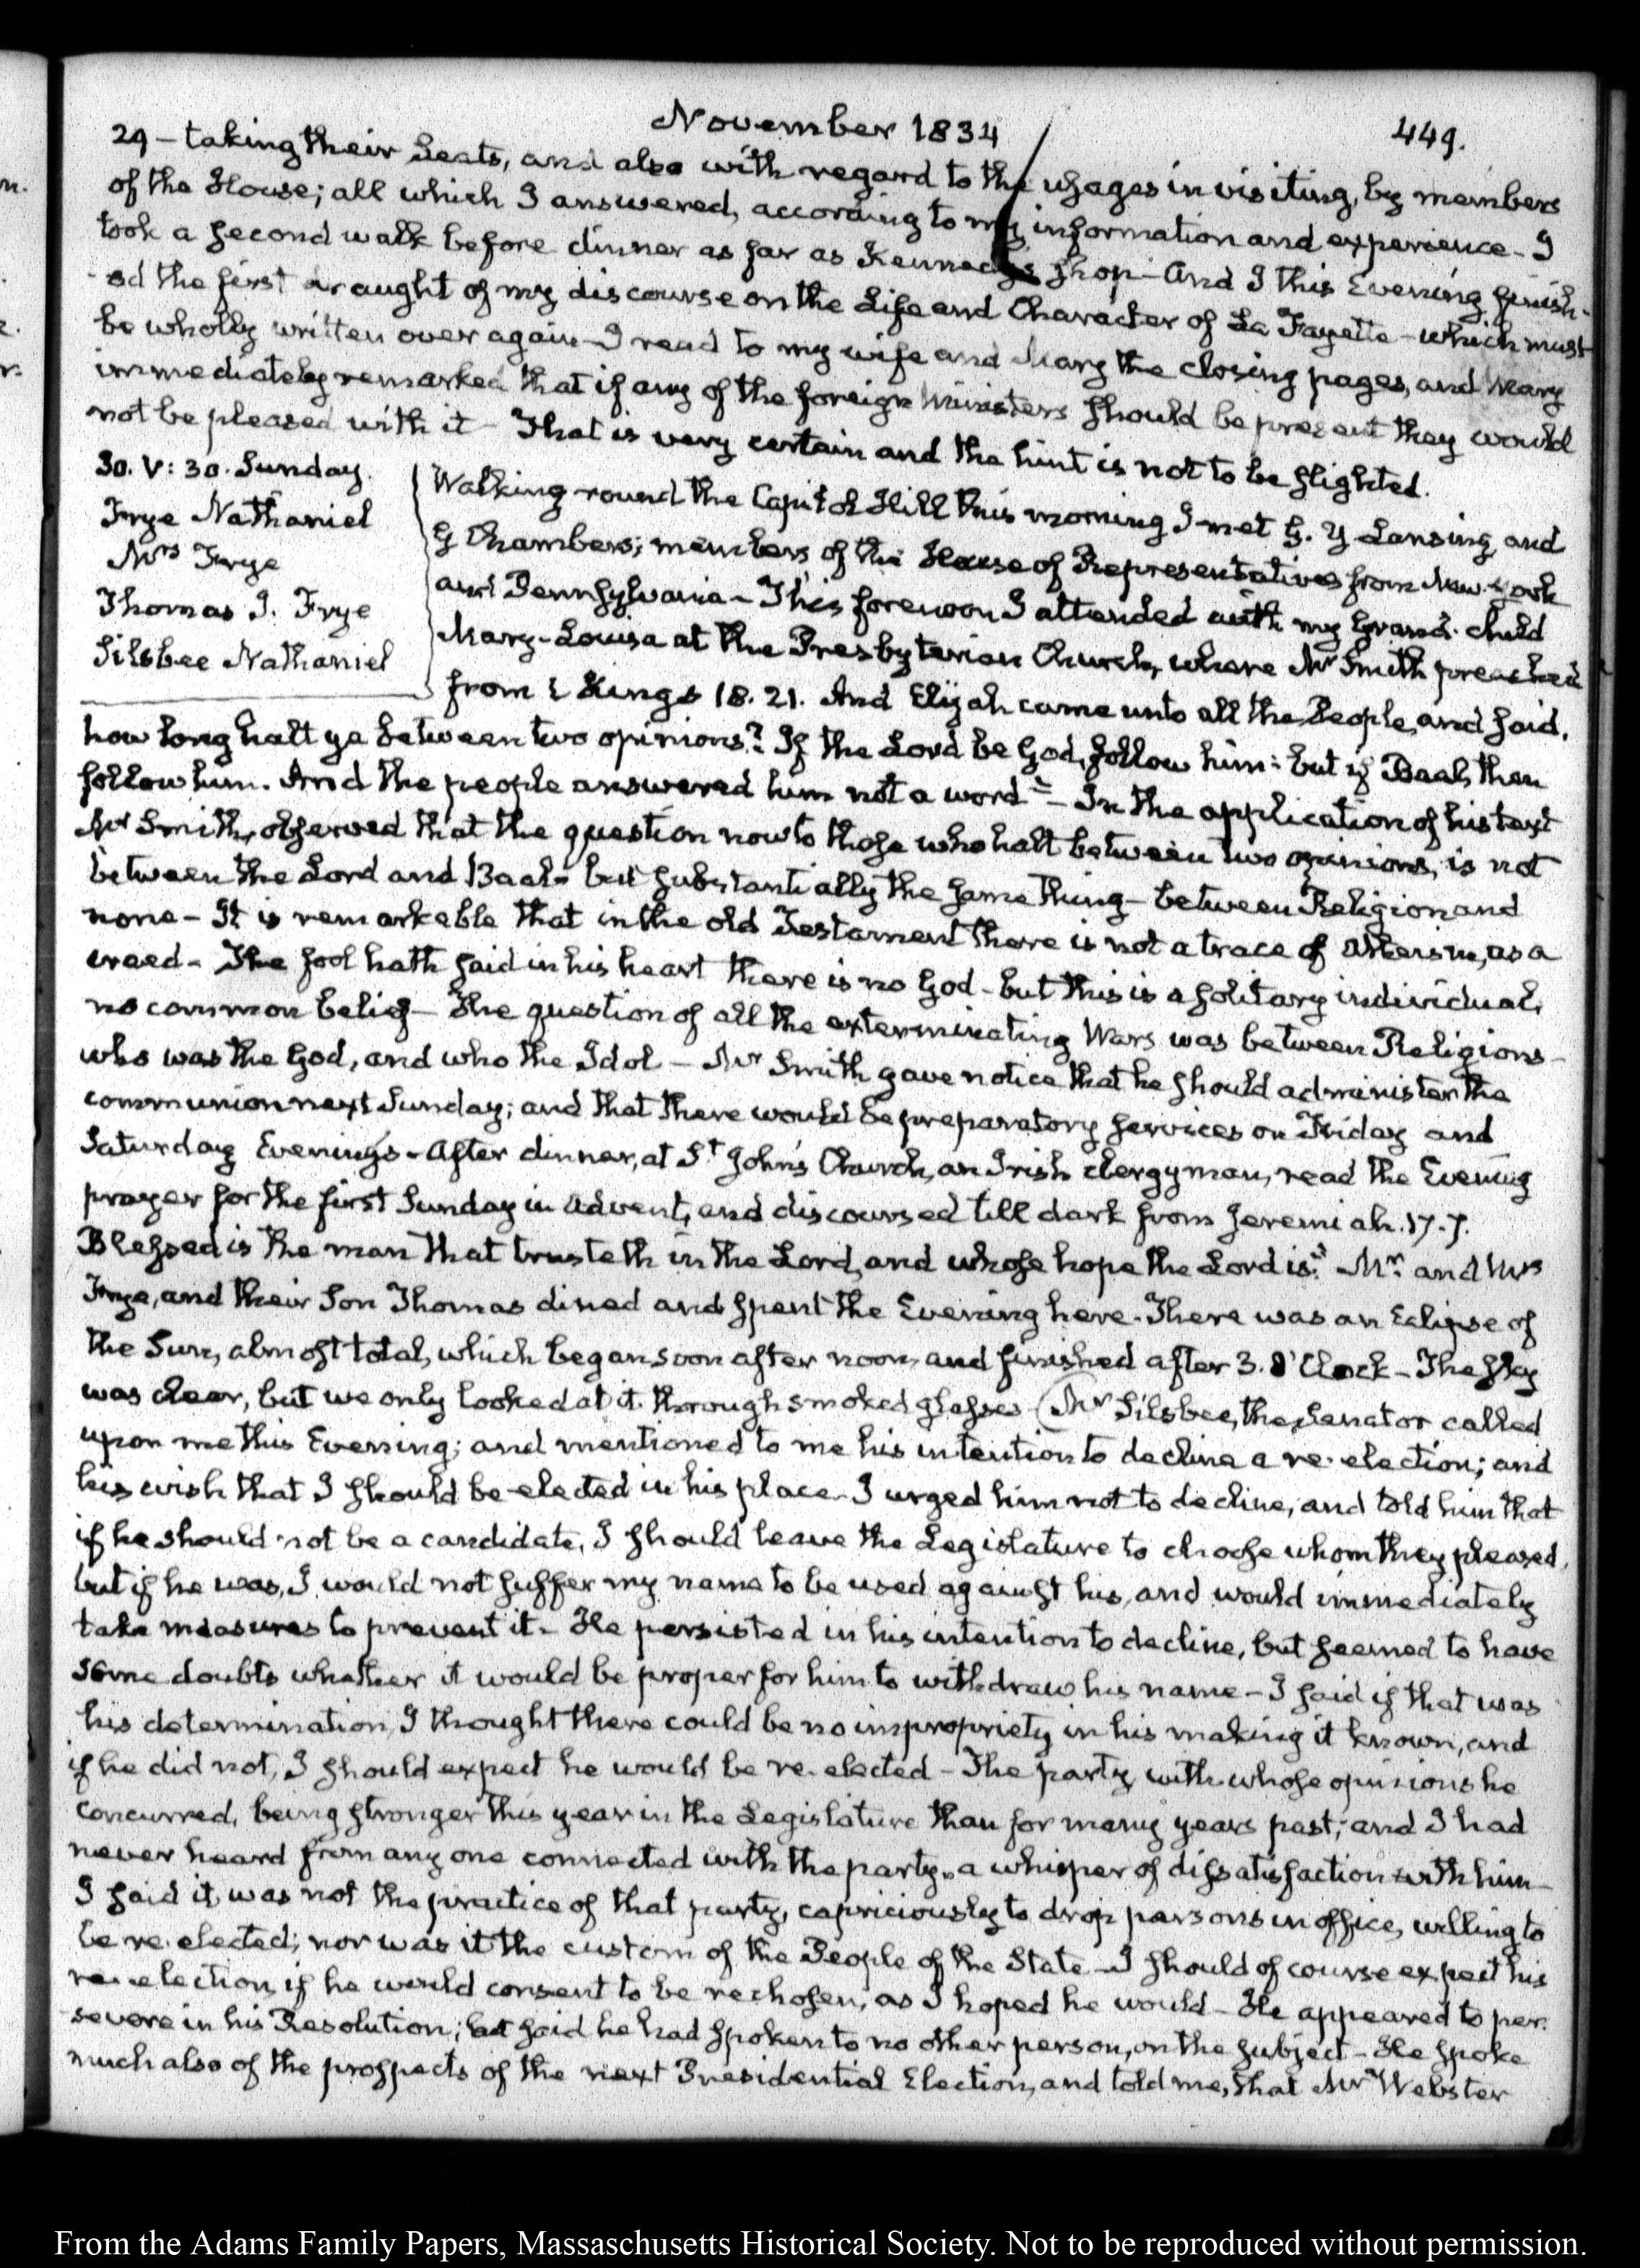 November 1834
449.
29 – taking their Seats, and also with regard to the usages in visiting, by members
of the House; all which I answered, according to my information and experience – I
took a second walk before dinner as far as Kennedy's shop – And I this Evening finish-
ed the first draught of my discourse on the Life and Character of La Fayette – which must
be wholly written over again – I read to my wife and Mary the closing pages, and Mary
immediately remarked that if any of the foreign Ministers should be present they would
not be pleased with it – That is very certain and the hint is not to be slighted.
30. V: 30. Sunday.
Frye Nathaniel
Mrs Frye
Thomas I. Frye
Silsbee Nathaniel
Walking round the Capitol Hill this morning I met G. Y Lansing, and
G Chambers; members of the House of Representatives from New-York
and Pennsylvania – This forenoon I attended with my Grand-child
Mary-Louisa at the Presbyterian Church, where Mr Smith preached
from 1 Kings 18. 21. And Elijah came unto all the People, and said,
how long halt ye between two opinions? If the Lord be God, follow him: but if Baal, then
follow him. And the people answered him not a word" – In the application of his text
Mr Smith, observed that the question now to those who halt between two opinions, is not
between the Lord and Baal – but substantially the same thing – between Religion and
none – It is remarkable that in the old Testament there is not a trace of Atheism, as a
creed – The fool hath said in his heart there is no God – but this is a solitary individual,
no common belief – The question of all the exterminating Wars was between Religions –
who was the God, and who the Idol – Mr Smith gave notice that he should administer the
communion next Sunday; and that there would be preparatory services on Friday and
Saturday Evenings – After dinner, at St John's Church, an Irish clergyman, read the Evening
prayer for the first Sunday in Advent, and discoursed till dark from Jeremiah. 17. 7.
Blessed is the man that trusteth in the Lord, and whose hope the Lord is." Mr. and Mrs
Frye, and their Son Thomas dined and spent the Evening here. There was an Eclipse of
the Sun, almost total, which began soon after noon, and finished after 3. O'Clock – The sky
was clear, but we only looked at it through smoked glasses (Mr Silsbee, the Senator called
upon me this Evening; and mentioned to me his intention to decline a re-election; and
his wish that I should be elected in his place – I urged him not to decline, and told him that
if he should not be a candidate, I should leave the Legislature to choose whom they pleased,
but if he was, I would not suffer my name to be used against his, and would immediately
take measures to prevent it – He persisted in his intention to decline, but seemed to have
some doubts whether it would be proper for him to withdraw his name – I said if that was
his determination, I thought there could be no impropriety in his making it known, and
if he did not, I should expect he would be re-elected – The party with whose opinions he
concurred, being stronger this year in the Legislature than for many years past; and I had
never heard from any one connected with the party, a whisper of dissatisfaction with him –
I said it was not the practice of that party, capriciously to drop persons in office, willing to
be re elected; nor was it the custom of the People of the State – I should of course expect his
re-election, if he would consent to be rechosen, as I hoped he would – He appeared to per-
severe in his Resolution; but said he had spoken to no other person, on the subject – He spoke
much also of the prospects of the next Presidential Election, and told me, that Mr Webster
From the Adams Family Papers, Massachusetts Historical Society. Not to be reproduced without permission.